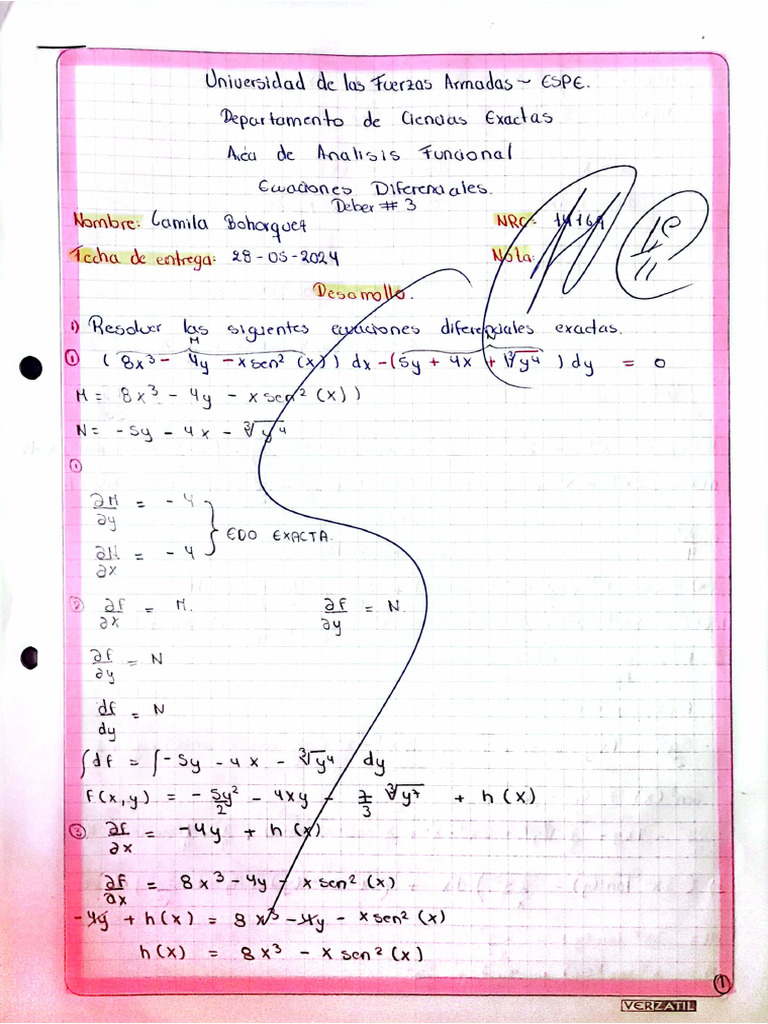 Universidad de las Fuerzas Armadas - ESPE.
Departamento de Ciencias Exactas
Área de Analisis Funcional
Ecuaciones Diferenciales.
Deber # 3
Nombre: Camila Bohorquez NRC: 14169
Fecha de entrega: 28-05-2024 Nota:
Desarrollo.
1) Resolver las siguientes ecuaciones diferenciales exactas.
M N
① (8x³ - 4y - x sen² (x)) dx - (5y + 4x + ∛y⁴) dy = 0
M = 8x³ - 4y - x sen² (x))
N = -5y - 4x - ∛y⁴
①
∂M/∂y = -4
EDO EXACTA.
∂N/∂x = -4
② ∂f/∂x = M. ∂f/∂y = N.
∂f/∂y = N
df/dy = N
∫df = ∫-5y - 4x - ∛y⁴ dy
f(x,y) = - 5y²/2 - 4xy - 7/3 ∛y⁷ + h(x)
③ ∂f/∂x = -4y + h(x)
∂f/∂x = 8x³ - 4y - x sen² (x)
-4y + h(x) = 8x³ - 4y - x sen² (x)
h(x) = 8x³ - x sen² (x)
1
VERZATIL